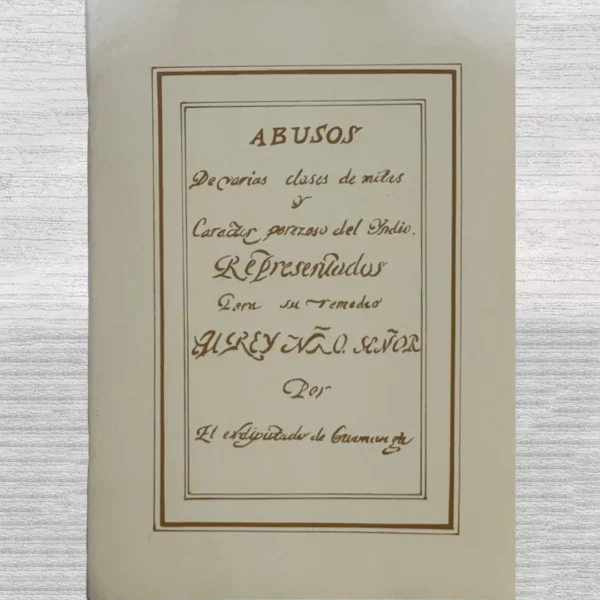 ABUSOS
De varias clases de mitas
y
Caracter perezoso del Yndio.
Representados
Para su remedio
AL REY NRÔ. SEÑOR
Por
El exdiputado de Guamanga